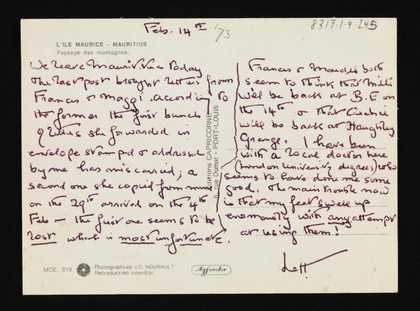 Feb. 14th '73
8317.1.9.245
L'ILE MAURICE - MAURITIUS
Paysage des montagnes.
We leave Mauritius today
The last post brought letters from
Frances & Maggi. According to
the former the first bunch
of she forwarded in
envelope stamped & addressed
by me has miscarried; a
second one she copied from mine
on the 29th arrived on the 4th
Feb — the first one seems to be
lost which is most unfortunate.
Frances & Maudie both
seem to think that Milli
will be back at B.E on
the 14th & that
will be back at Haughley
Grange. I have been
with a local doctor here
(London University degree) who
seems to have done me some
good. The main trouble now
is that my feet swell up
enormously with any attempt
at using them!
Lett
Editions CA PRECORNE
Rue Dumat - PORT-LOUIS
MCE. 519
Photographies J.C. NOURAULT
Reproduction interdite